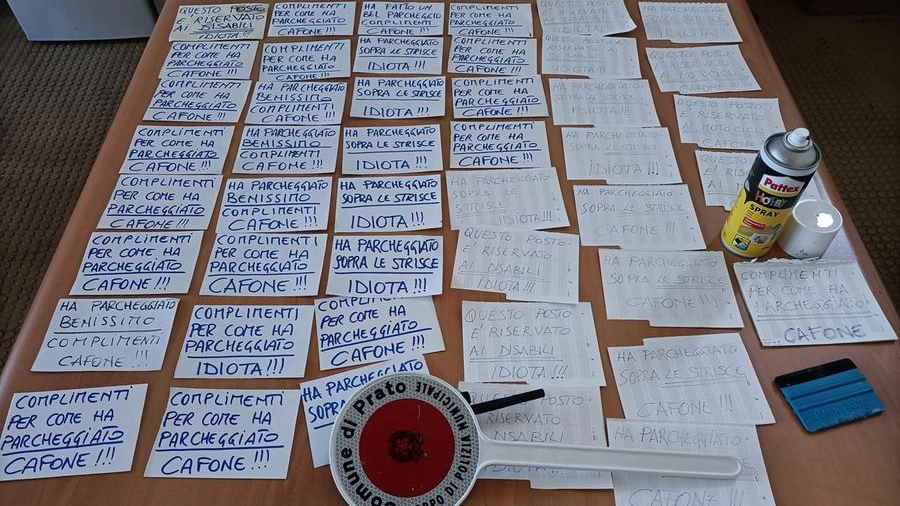 QUESTO POSTO
E' RISERVATO
AI DISABILI
IDIOTA!!!
COMPLIMENTI
PER COME HA
PARCHEGGIATO
CAFONE!!!
HA FATTO UN
BEL PARCHEGGIO
COMPLIMENTI
CAFONE!!!
COMPLIMENTI
PER COME HA
PARCHEGGIATO
CAFONE!!!
HA PARCHEGGIATO
SOPRA LE STRISCE
IDIOTA!!!
COMPLIMENTI
PER COME HA
PARCHEGGIATO
CAFONE!!!
COMPLIMENTI
PER COME HA
PARCHEGGIATO
CAFONE!!!
HA PARCHEGGIATO
SOPRA LE STRISCE
IDIOTA!!!
COMPLIMENTI
PER COME HA
PARCHEGGIATO
CAFONE!!!
QUESTO POSTO
E' RISERVATO
COMPLIMENTI
PER COME HA
PARCHEGGIATO
CAFONE!!!
HA PARCHEGGIATO
BENISSIMO
COMPLIMENTI
CAFONE!!!
HA PARCHEGGIATO
SOPRA LE STRISCE
IDIOTA!!!
COMPLIMENTI
PER COME HA
PARCHEGGIATO
CAFONE!!!
HA PARCHEGGIATO
SOPRA LE STRISCE
QUESTO POSTO
E' RISERVATO
COMPLIMENTI
PER COME HA
PARCHEGGIATO
CAFONE!!!
HA PARCHEGGIATO
BENISSIMO
COMPLIMENTI
CAFONE!!!
HA PARCHEGGIATO
SOPRA LE STRISCE
IDIOTA!!!
COMPLIMENTI
PER COME HA
PARCHEGGIATO
CAFONE!!!
HA PARCHEGGIATO
SOPRA LE STRISCE
IDIOTA!!!
QUESTO
Pattex
HOBBY
SPRAY
COMPLIMENTI
PER COME HA
PARCHEGGIATO
CAFONE!!!
HA PARCHEGGIATO
BENISSIMO
COMPLIMENTI
CAFONE!!!
HA PARCHEGGIATO
SOPRA LE STRISCE
IDIOTA!!!
HA PARCHEGGIATO
SOPRA LE
STRISCE
IDIOTA!!!
HA PARCHEGGIATO
SOPRA LE STRISCE
CAFONE!!!
COMPLIMENTI
PER COME HA
PARCHEGGIATO
CAFONE!!!
COMPLIMENTI
PER COME HA
PARCHEGGIATO
CAFONE!!!
HA PARCHEGGIATO
SOPRA LE STRISCE
IDIOTA!!!
QUESTO POSTO
E' RISERVATO
AI DISABILI
IDIOTA!!!
HA PARCHEGGIATO
SOPRA LE STRISCE
CAFONE!!!
COMPLIMENTI
PER COME HA
PARCHEGGIATO
CAFONE
HA PARCHEGGIATO
BENISSIMO
COMPLIMENTI
CAFONE!!!
COMPLIMENTI
PER COME HA
PARCHEGGIATO
IDIOTA!!!
COMPLIMENTI
PER COME HA
PARCHEGGIATO
CAFONE!!!
QUESTO POSTO
E' RISERVATO
AI DISABILI
IDIOTA!!!
HA PARCHEGGIATO
SOPRA LE STRISCE
CAFONE!!!
COMPLIMENTI
PER COME HA
PARCHEGGIATO
CAFONE!!!
COMPLIMENTI
PER COME HA
PARCHEGGIATO
CAFONE!!!
HA PARCHEGGIATO
SOPRA
Comune di Prato
CORPO DI POLIZIA MUNICIPALE
QUESTO POSTO
E' RISERVATO
HA PARCHEGGIATO
SOPRA LE STRISCE
CAFONE!!!